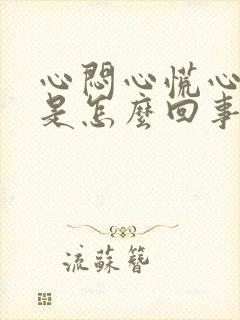 心悶心慌心
是怎麼回事
流蘇簪